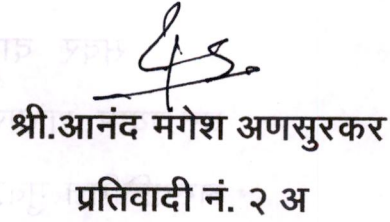 श्री.आनंद मंगेश अणसुरकर
प्रतिवादी नं. २ अ